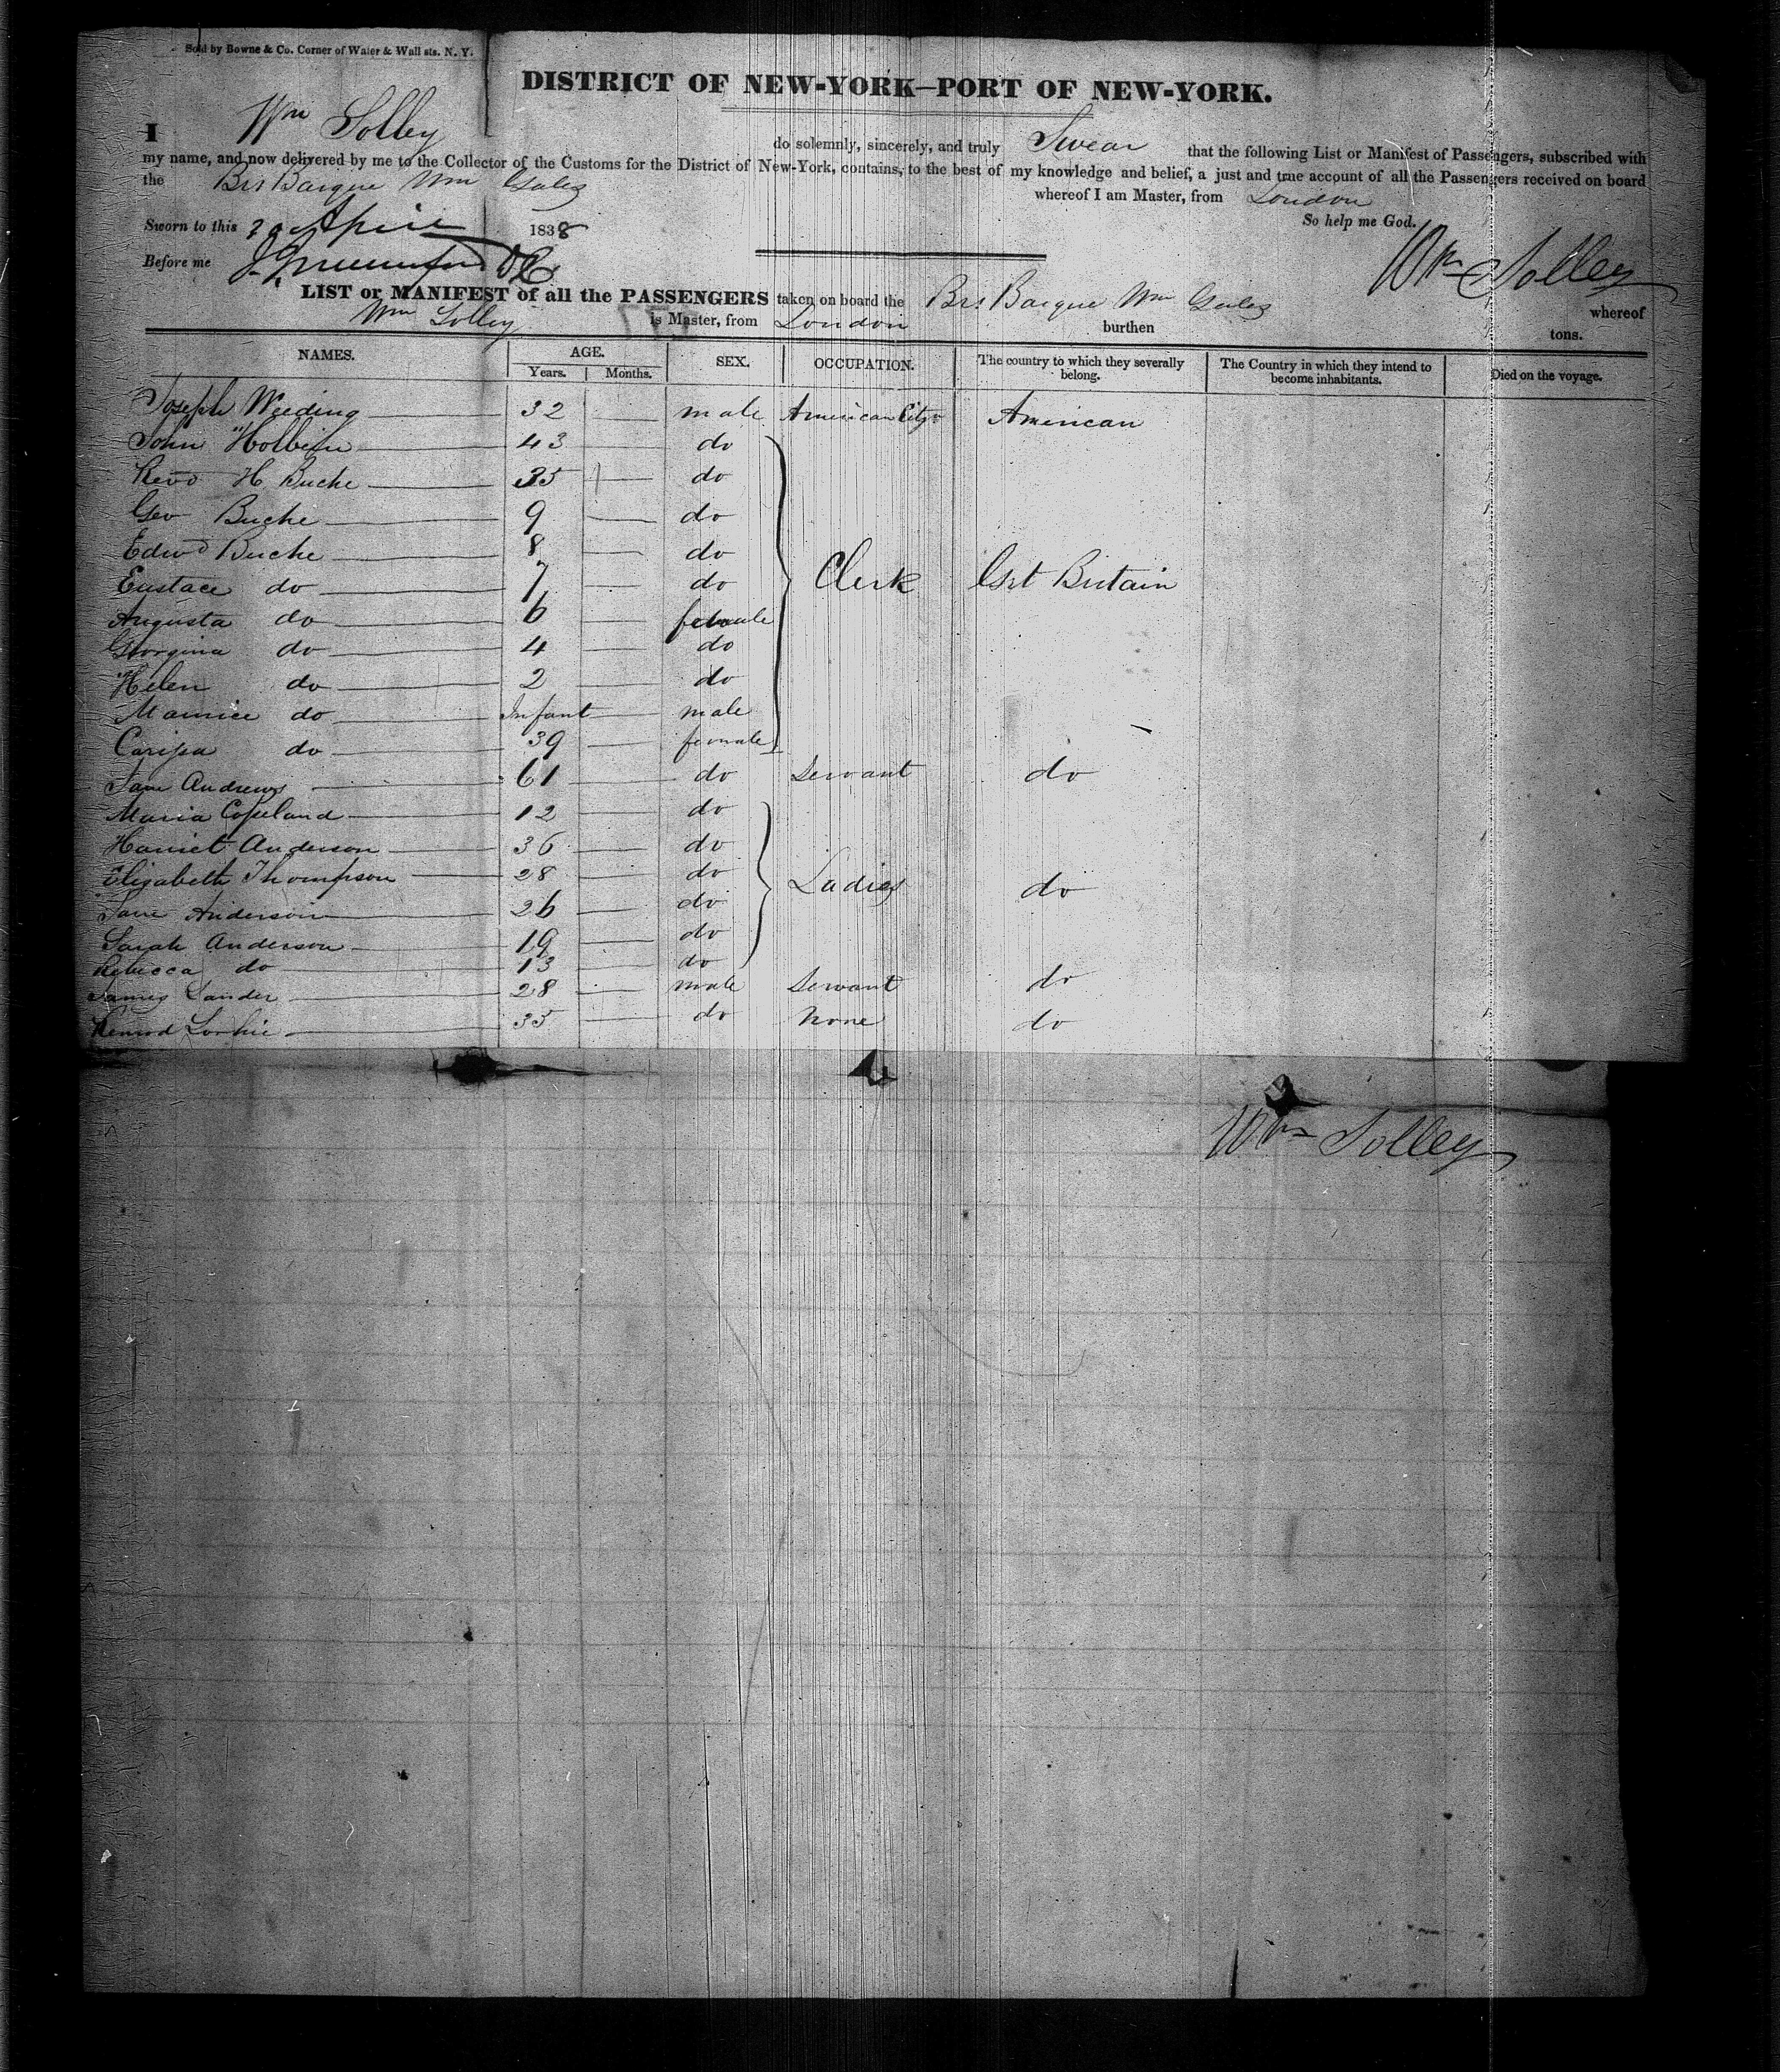 Sold by Bowne & Co. Corner of Water & Wall sts. N. Y.
DISTRICT OF NEW-YORK—PORT OF NEW-YORK.
I Wm Solley do solemnly, sincerely, and truly Swear that the following List or Manifest of Passengers, subscribed with
my name, and now delivered by me to the Collector of the Customs for the District of New-York, contains, to the best of my knowledge and belief, a just and true account of all the Passengers received on board
the Brs Barque Wm whereof I am Master, from London
Sworn to this April 1838 So help me God.
Before me Wm Solley
LIST or MANIFEST of all the PASSENGERS taken on board the Brs Barque Wm whereof
Wm Solley is Master, from London burthen tons.
NAMES. AGE. SEX. OCCUPATION. The country to which they severally belong. The Country in which they intend to become inhabitants. Died on the voyage.
Years. Months.
Joseph Weeding 32 male American Citzn American
John Holbein 43 do
Revd H Buche 35 do
Geo Buche 9 do
Edwd Buche 8 do
Eustace do 7 do Clerk Grt Britain
Augusta do 6 female
Georgina do 4 do
Helen do 2 do
Maurice do Infant male
do 39 female
Jane Andrews 61 do Servant do
Maria Copeland 12 do
Harriet Anderson 36 do
Elizabeth Thompson 28 do Ladies do
Jane Anderson 26 do
Sarah Anderson 19 do
Rebecca do 13 do
James Lander 28 male Servant do
35 do None do
Wm Solley